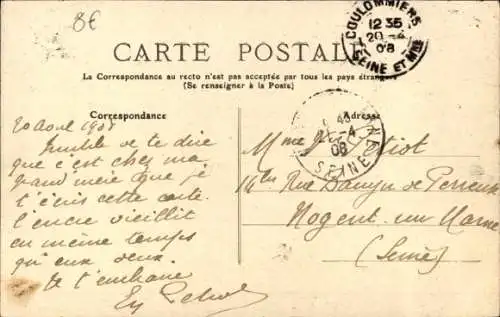 8€
CARTE POSTALE
La Correspondance au recto n'est pas acceptée par tous les pays étrangers
(Se renseigner à la Poste)
COULOMMIERS
12 35
20 -4
08
SEINE ET MNE
Correspondance
20 Avril 1908
Inutile de te dire
que c'est chez ma
grand mère que je
t'écris cette carte.
l'encre vieillit
en même temps
qu'eux deux.
Je t'embrasse
Adresse
-4
08
SEINE
Mme
14 bis Rue de Perreux
Nogent sur Marne
(Seine)